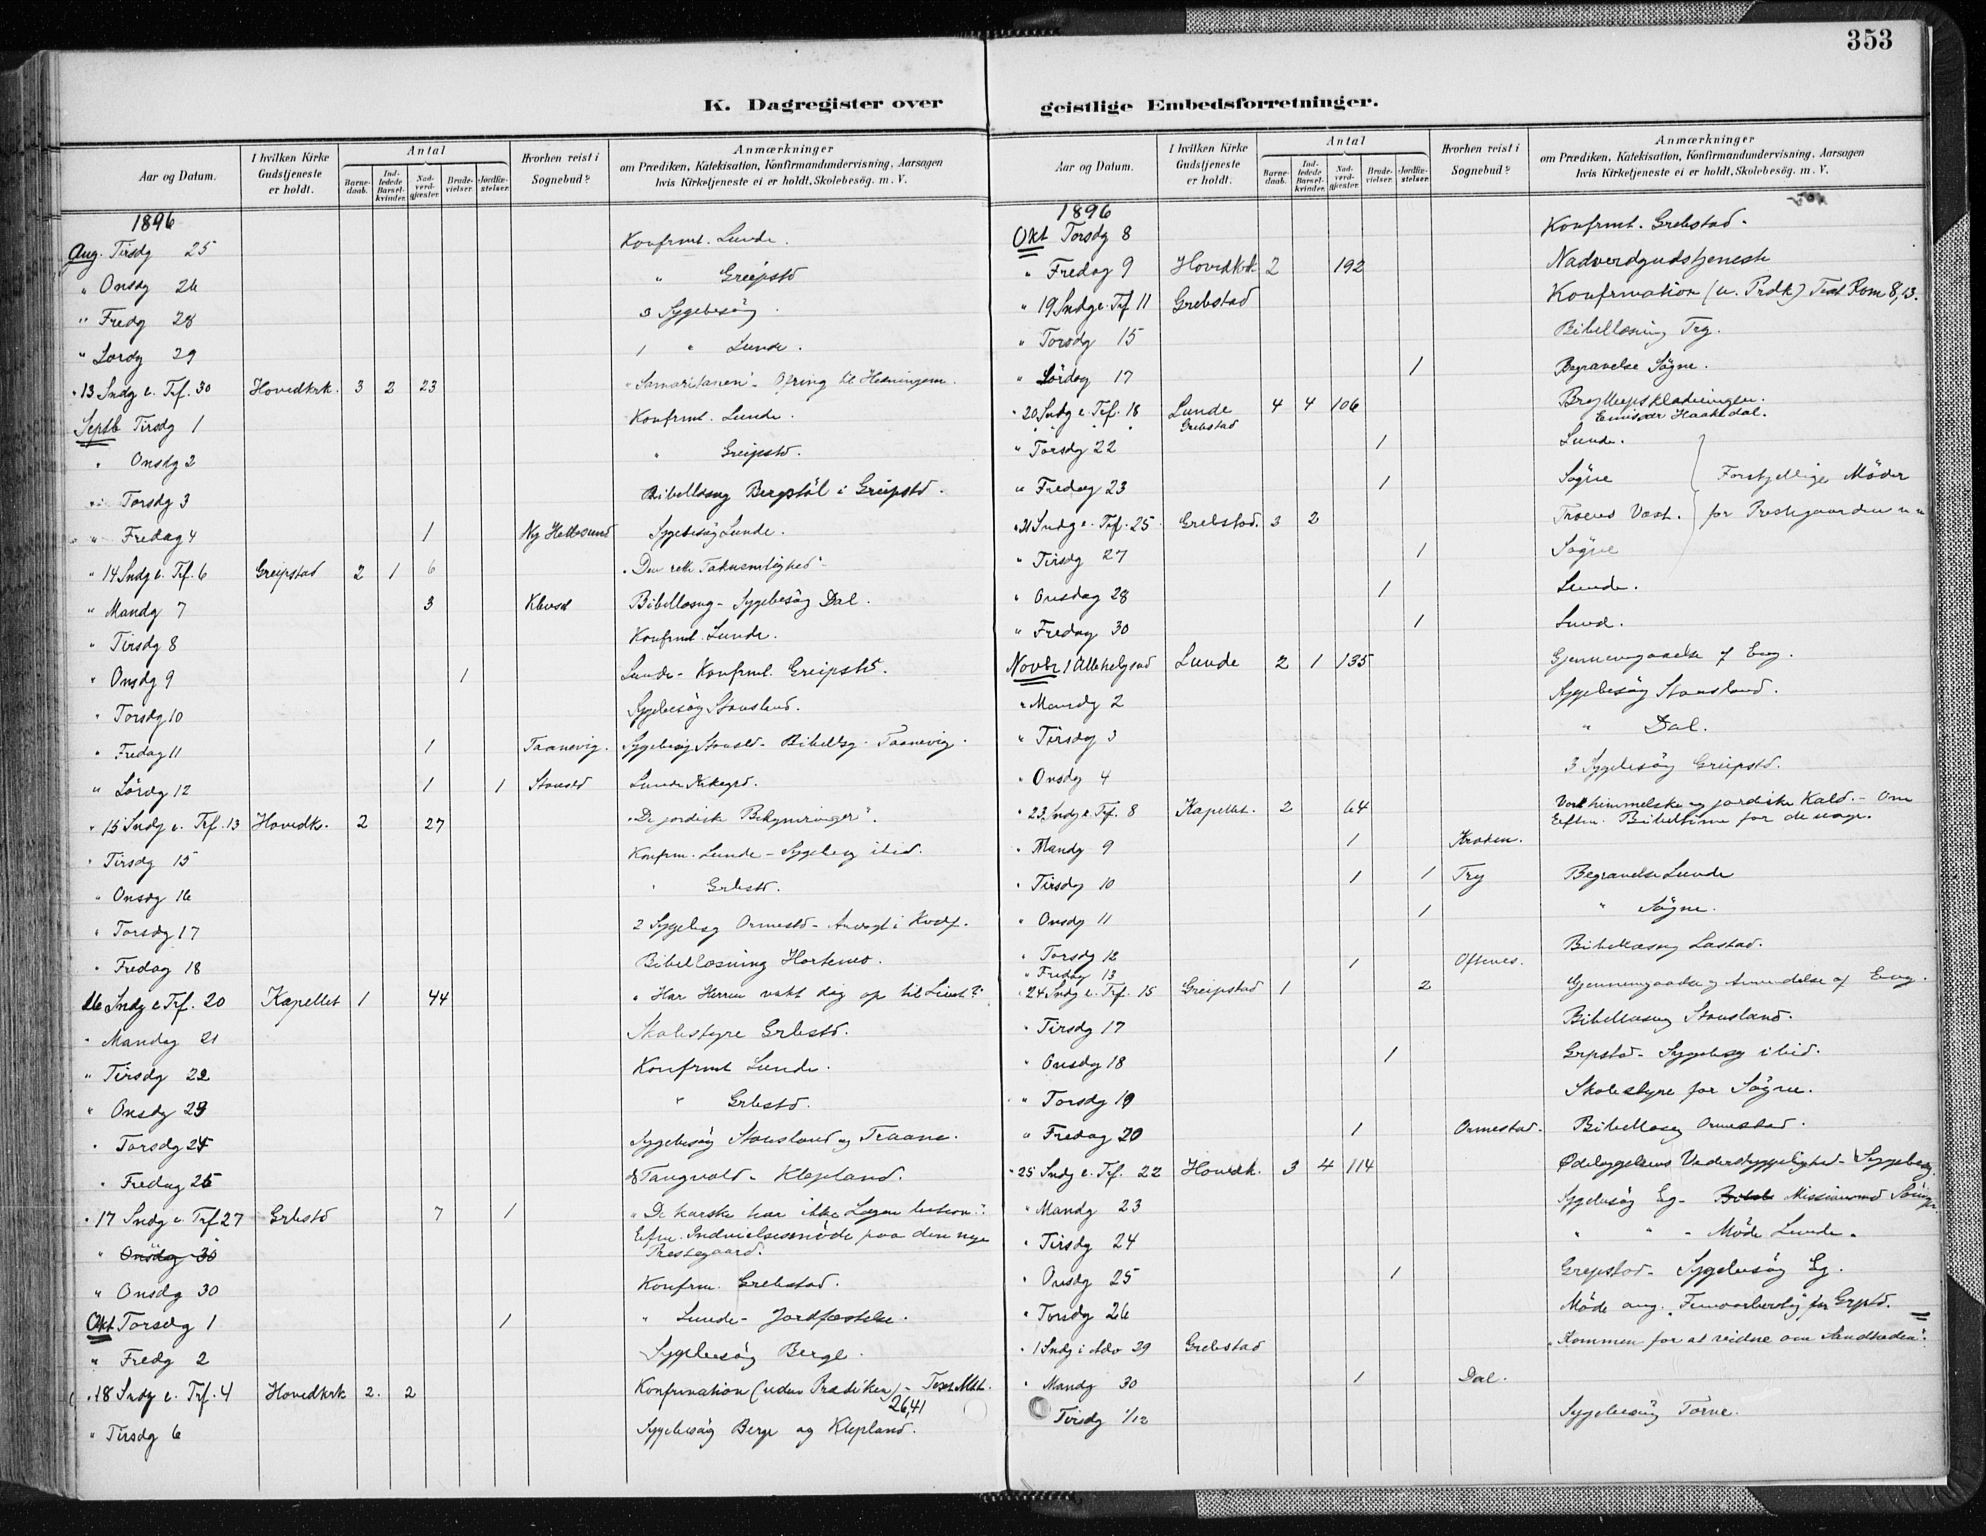 353
K. Dagregister over geistlige Embedsforretninger.
Aar og Datum. I hvilken Kirke Gudstjeneste er holdt. Antal Barnedaab. Indledede Barselkvinder. Nadverdgjester. Brudevielser. Jordfæstelser. Hvorhen reist i Sognebud? Anmærkninger om Prædiken, Katekisation, Konfirmandundervisning, Aarsagen hvis Kirketjeneste ei er holdt, Skolebesög. m. V.
1896
Aug. Tirsdg 25 Konfrmt. Lunde.
" Onsdg 26 " Greipstd
" Fredg 28 3 Sygebesøg.
" Lørdg 29 1 " Lunde.
" 13 Sndg e. Trf. 30 Hovedkrk. 3 2 23 "Samaritanen". Ofring til Hedningem.
Septb Tirsdg 1 Konfrmt. Lunde.
" Onsdg 2 " Greipstd.
" Torsdg 3 Bibellæsng Bergstøl i Greipstd.
" Fredag 4 1 Ny Hellesund Sygebesøg Lunde.
" 14 Sndg e. Trf. 6 Greipstad 2 1 6 "Den rette Taknemlighed".
" Mandg 7 3 Klevsd Bibellæsng - Sygebesøg Dal.
" Tirsdg 8 Konfrmt. Lunde.
" Onsdg 9 1 Lunde - Konfrmt. Greipstd.
" Torsdg 10 Sygebesøg Stausland.
" Fredag 11 1 Taanevig. Sygebesøg Stausld - Bibellsg. Taanevig.
" Lördg 12 1 1 Stausld Lunde Kirkegrd.
" 15 Sndg e. Trf. 13 Hovedk. 2 27 "De jordiske Bekymringer".
" Tirsdg 15 Konfrm. Lunde - Sygebsg ibid.
" Onsdg 16 " Grbstd.
" Torsdg 17 2 Sygebsg Ormestd -
" Fredag 18 Bibellæsning Hortemo.
16 Sndg e Trf. 20 Kapellet 1 44 "Har Herren vakt dig op til Livet?"
" Mandag 21 Skolestyre Grbstd.
" Tirsdg 22 Konfrmt Lunde.
" Onsdg 23 " Grbstd.
" Torsdg 24 Sygebesøg Stausland og Traane.
" Fredag 25 Tangvald - Klepland.
" 17 Sndg e Trf 27 Grbstd 7 1 "De karske har ikke Læge behov".
" Onsdag 30 Eftm. Indvielsesmøde paa den nye Prestegaard.
" Onsdg 30 Konfrm. Grebstad.
Okt Torsdg 1 1 " Lunde - Jordfæstelse.
" Fredg 2 Sygebesøg Berge.
" 18 Sndg e. Trf. 4 Hovedkrk 2. 2 Konfrmation (uden Prædiken) - Text Mtt. 26,41
" Tirsdg 6 Sygebesøg Berge og Klepland.
Aar og Datum. I hvilken Kirke Gudstjeneste er holdt. Antal Barnedaab. Indledede Barselkvinder. Nadverdgjester. Brudevielser. Jordfæstelser. Hvorhen reist i Sognebud? Anmærkninger om Prædiken, Katekisation, Konfirmandundervisning, Aarsagen hvis Kirketjeneste ei er holdt, Skolebesög. m. V.
1896
Okt Torsdg 8 Konfrmt. Grebstad.
" Fredag 9 Hovedkrk 2 192 Nadverdgudstjeneste
" 19 Sndg e. Trf 11 Grebstad Konfrmation (u. Prdk) Text Rom 8,13.
" Torsdg 15 Bibellæsning Try.
" Lördag 17 1 Begravelse Søgne.
" 20 Sndg e. Trf. 18 Lunde 4 4 106 Bryllupsklædningen.
" " " " Grebstad Emissær Haakedal.
" Torsdg 22 1 Lunde.
" Fredag 23 1 Søgne Forskjellige Møder
" 21 Sndg e. Trf. 25. Grebstad. 3 2 Troens Vext. for Prestegaarden
" Tirsdg 27 1 Søgne
" Onsdag 28 1 Lunde.
" Fredag 30 1 Lund.
Novbr 1 Allehelgsnd Lunde 2 1 135 Gjennemgaaelse af Evg.
" Mandg 2 Sygebesøg Stausland.
" Tirsdg 3 " Dal.
" Onsdg 4 3 Sygebesøg Greipstd.
" 23 Sndg e Trf. 8 Kapellet. 2 64 Vort himmelske og jordiske Kald. - Om Eeftm. Bibeltime for de unge.
" Mandg 9 1 Kroken.
" Tirsdg 10 1 1 Try Begravelse Lunde
" Onsdg 11 1 " Søgne.
" Torsdg 12 Bibellæsng Lastad.
" Fredag 13 1 Oftenes.
" 24 Sndg e. Trf. 15 Greipstad 1 2 Gjennemgaaelse og Anvendelse af Evg.
" Tirsdg 17 Bibellæsng Stausland.
" Onsdg 18 1 Grpstad - Sygebsg ibid.
" Torsdg 19 Skolestyre for Søgne.
" Fredag 20 1 Ormestad. Bibellæsng Ormestad.
" 25 Sndg e. Trf. 22 Hovedk. 3 4 114 Ødelæggelsens Vederstyggelighed - Sygebesg.
" Mandg 23 Sygebesøg Eg -
" Tirsdg 24 " " - Møde Lunde.
" Onsdg 25 1 Grepstad - Sygebesøg Eg.
" Torsdg 26 Møde ang. for Grpstd.
" 1 Sndg i Adv 29 Grebstad "Kommen for at vidne om Sandheden".
" Mandg 30 1 Dal.
" Tirsdg 1/12 Sygebesøg Tørne.